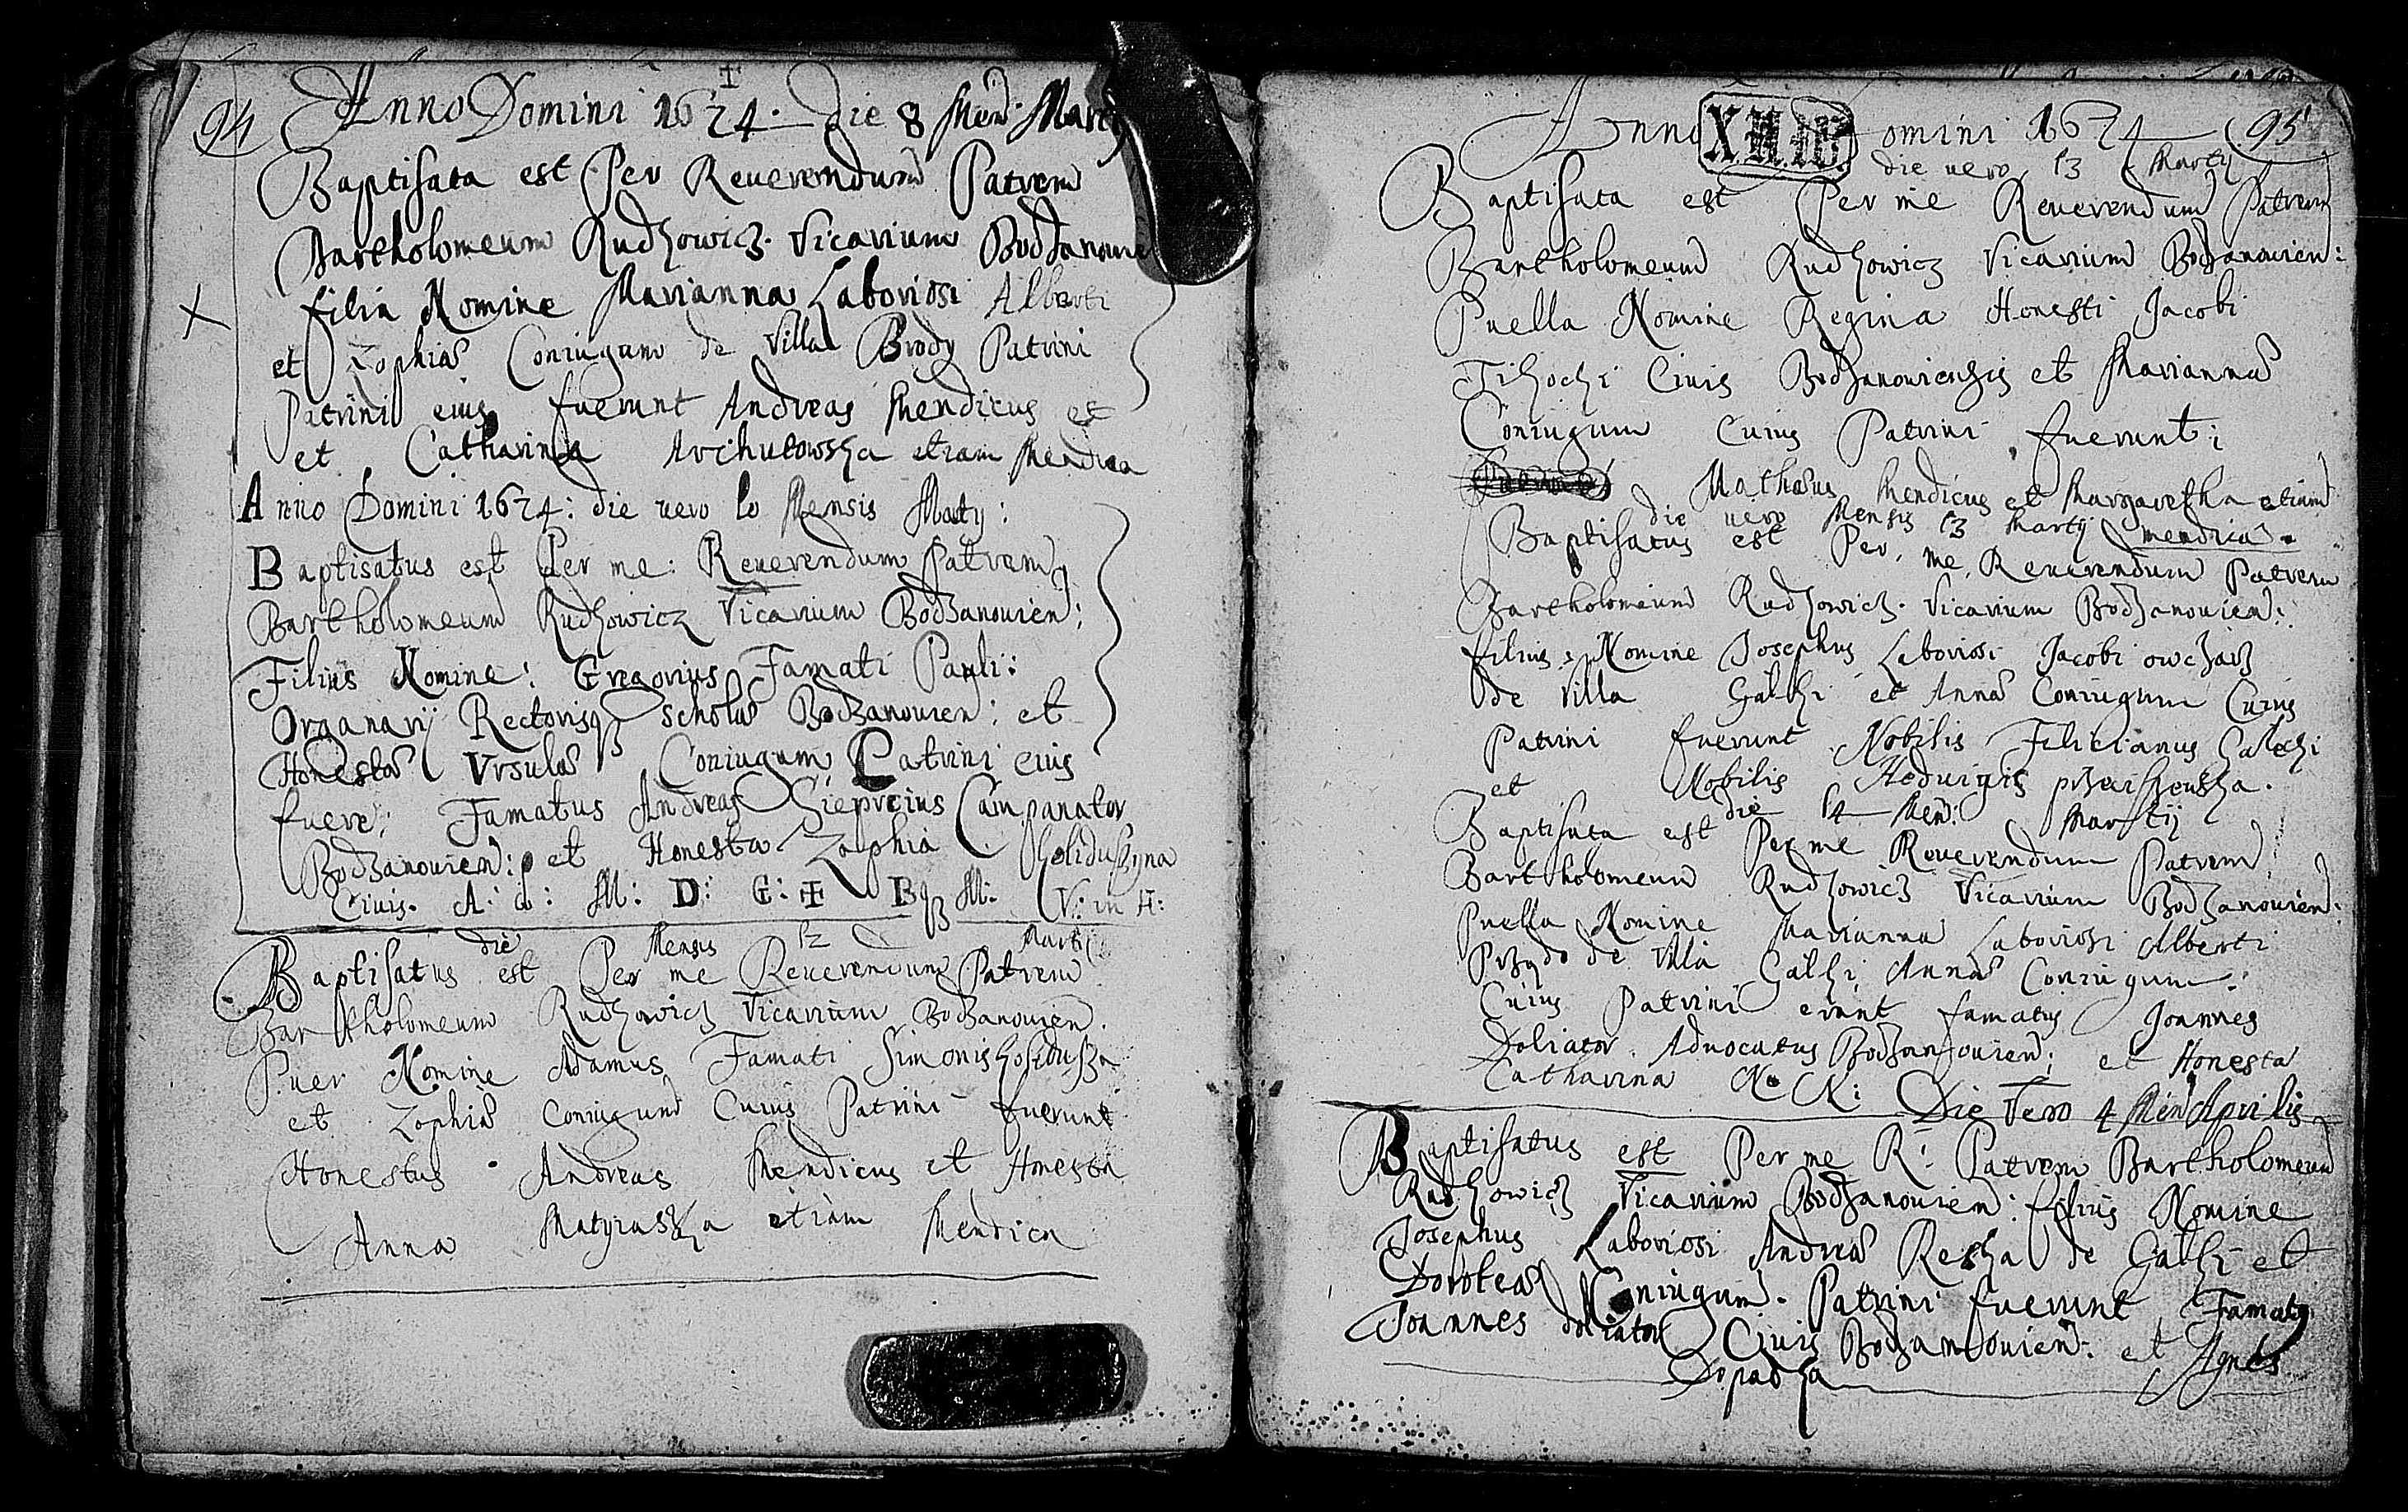 94 Anno Domini 1674. die 8 Men: Marty
Baptisata est Per Reuerendum Patrem
Bartholomeum Rudzowicz Vicarium Bodzanouie
filia Nomine Marianna Laboriosi Alberti
et Zophiæ Coniugum de Villa Brody Patrini
Patrini eius fuerunt Andreas Mendicus et
et Catharina Archutowska etiam Mendica
Anno Domini 1674: die vero 10 Mensis Marty:
Baptisatus est Per me: Reuerendum Patrem
Bartholomeum Rudzowicz Vicarium Bodzanouien:
Filius Nomine: Gregorius Famati Pauli:
Organarij Rectorisq3 scholæ Bodzanouien: et
Honestæ Vrsulæ Coniugum Patrini eius
fuere: Famatus Andreas Campanator
Bodzanouien: et Honesta Zophia Holiduszyna
Ciuis. A: d: M: D: G: ✠ Bq3 M: V: in H:
die Mensis 12 Marti
Baptisatus est Per me Reuerendum Patrem
Bartholomeum Rudzowicz Vicarium Bodzanouien.
Puer Nomine Adamus Famati Simonis
et Zophiæ Coniugum Cuius Patrini fuerunt
Honestus Andreas Mendicus et Honesta
Anna Matyiaszka etiam Mendica
Anno Domini 1674 95
XII.16
die vero 13 Marty
Baptisata est Per me Reuerendum Patrem
Bartholomeum Rudzowicz Vicarium Bodzanouien:
Puella Nomine Regina Honesti Jacobi
Ciuis Bodzanouiensis et Mariannæ
Coniugum Cuius Patrini fuerunt:
Mathæus Mendicus et Margaretha etiam
mendica.
die vero Mensis 13 Marty
Baptisatus est Per me, Reuerendum Patrem
Bartholomeum Rudzowicz. Vicarium Bodzanouien:
filius Nomine Josephus Laboriosi Jacobi owczarz
de Villa Galki et Annæ Coniugum Cuius
Patrini fuerunt Nobilis Filicianus Galecki
et Nobilis Heduigis
die 14 Men: Martij
Baptisata est Per me Reuerendum Patrem
Bartholomeum Rudzowicz Vicarium Bodzanouien:
Puella Nomine Marianna Laboriosi Alberti
de Villa Galki Annæ Coniugum.
Cuius Patrini erunt famatus Joannes
Doliator. Aduocatus Bodzanouien: et Honesta
Catharina N. N:
Die Vero 4 Men Aprilis
Baptisatus est Per me R: Patrem Bartholomeum
Rudzowicz Vicarium Bodzanouien: filius Nomine
Josephus Laboriosi Andreæ Reszka de Galki et
Doroteæ Coniugum. Patrini fuerunt Famatus
Joannes doliator Ciuis Bodzanouien: et Agnes
Dopadka